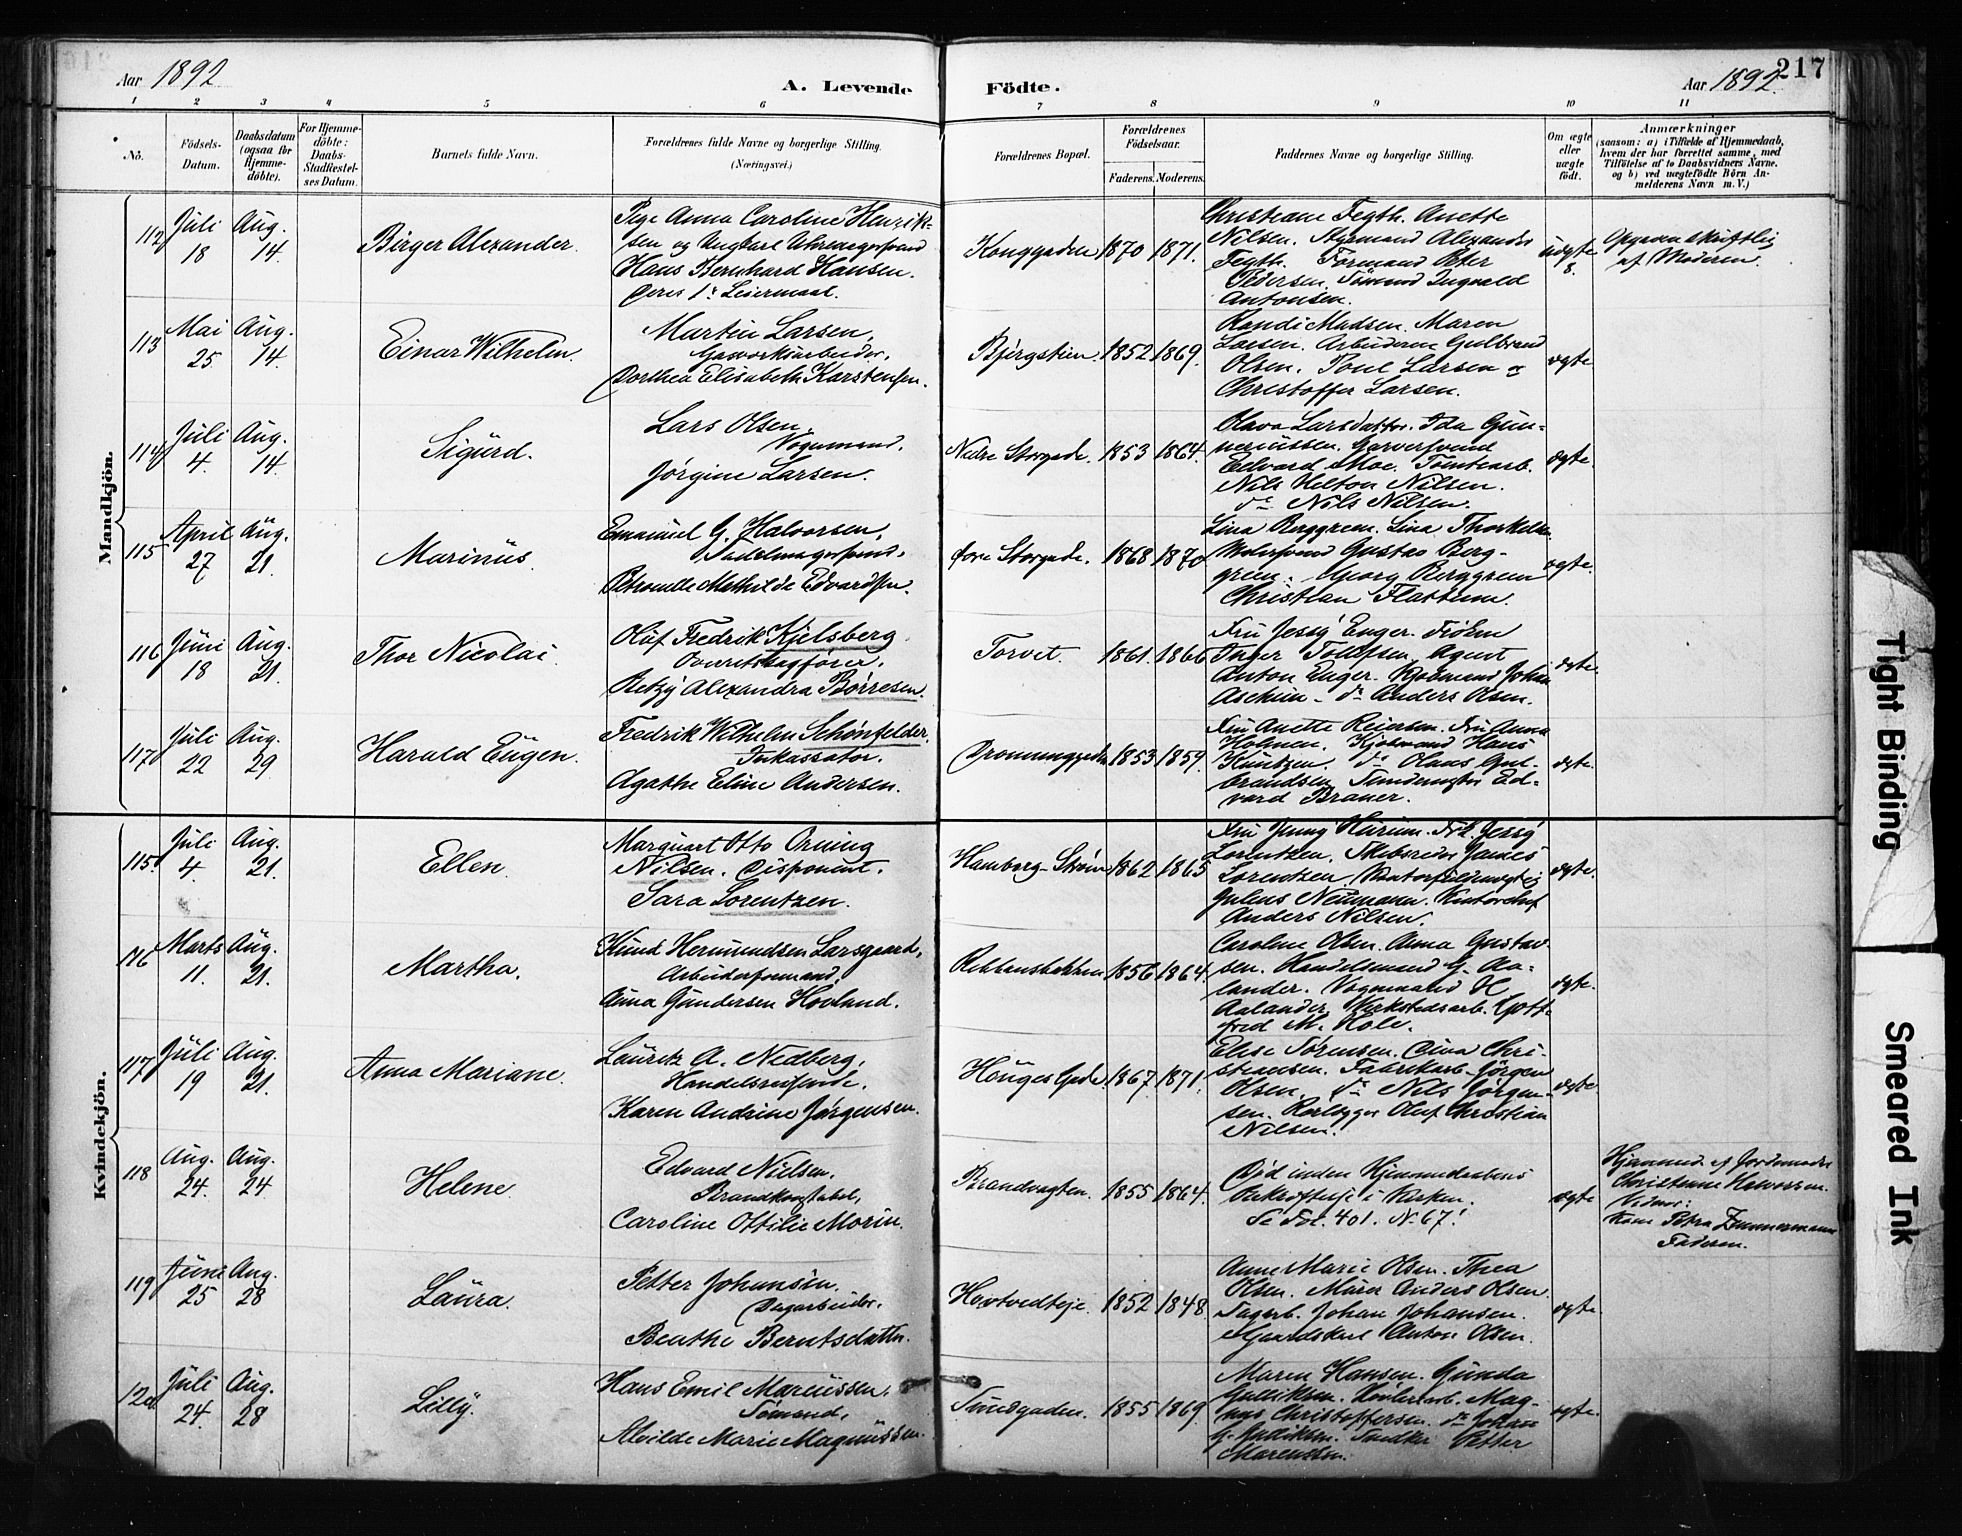 Aar 1892
A. Levende Födte.
Aar 1892.
217
1 2 3 4 5 6 7 8 9 10 11
No.
Födsels-
Datum.
Daabsdatum
(ogsaa for
Hjemme-
döbte).
For Hjemme-
döbte:
Daabs-
Stadfæstel-
ses Datum.
Barnets fulde Navn.
Forældrenes fulde Navne og borgerlige Stilling.
(Næringsvei.)
Forældrenes Bopæl.
Forældrenes
Födselsaar.
Faderens. Moderens.
Faddernes Navne og borgerlige Stilling.
Om ægte
eller
uægte
födt.
Anmærkninger
(saasom: a) i Tilfælde af Hjemmedaab,
hvem der har forrettet samme, med
Tilföielse af to Daabsvidners Navne,
og b) ved uægtefödte Börn An-
melderens Navn m. V.)
Mandkjön.
112 Juli 18 Aug. 14
Birger Alexander
Pige Anna Caroline Henrik-
sen og Ungkarl
Hans Bernhard Hansen.
Deres 1ste Leiermaal.
Konggaden 1870 1871.
Christiane Fegth. Anette
Nilsen. Styrmand Alexander
Fegth. Formand Peter
Pedersen. Sömand Ingvald
Antonsen.
uægte
Opgaven skriftlig
af Moderen.
113 Mai 25 Aug. 14
Einar Wilhelm.
Martin Larsen,
Gasverksarbeider,
Dorthea Elisabeth Karstensen.
Bjergstien. 1852 1869.
Randi Madsen. Maren
Larsen. Arbeiderne Gulbrand
Olsen, Poul Larsen og
Christoffer Larsen.
ægte
114 Juli 4. Aug. 14
Sigurd.
Lars Olsen,
Vognmand,
Jörgine Larsen.
Nedre Storgade. 1853 1864.
Olava Larsdatter. Ida Gun-
neriussen. Garversvend
Edvard Moe. Tomtearb.
Nils Helton Nilsen.
do Nils Nilsen.
ægte.
115 April 27 Aug. 21.
Marinus
Emanuel G. Halvorsen,
Sadelmagersvend,
Petronelle Mathilde Edvardsen.
Övre Storgade. 1868 1870
Lina Berggreen. Lina Thorkelsen
Malersvend Gustav Berg-
green. Georg Berggreen
Christian Flattum.
ægte.
116 Juni 18 Aug. 21.
Thor Nicolai
Oluf Fredrik Kjelsberg
Overretssagförer,
Betzy Alexandra Börresen.
Torvet. 1861. 1866
Fru Jessy Enger. Fröken
Inger Tollefsen. Agent
Anton Enger. Kjöbmand Johan
Aschim - do Anders Olsen.
ægte.
117 Juli 22 Aug. 29
Harald Eugen.
Fredrik Wilhelm Schönfelder,
Inkassator.
Agathe Eline Andersen.
Dronninggaden 1853 1859.
Fru Anette Reiersen. Fru Anna
Holmen. Kjöbmand Hans
Kuntzen. do Olaus Gul-
brandsen
vard Braner.
ægte.
Kvindekjön.
115. Juli 4. Aug. 21.
Ellen.
Marquart Otto Orning
Nilsen. Disponent.
Sara Lorentzen.
Hamborg-Ström 1862 1865
Fru Jenny Harum. Frk. Jessy
Lorentzen. Skibsreder James
Lorentzen, Kontorfuldmægtig
Julius Neumann. Kontorchef
Anders Nilsen.
ægte.
116 Marts 11. Aug. 21.
Martha.
Knud Hermundsen Larsgaard,
Arbeiderformand,
Anna Gundersen Hovland.
Rebbansbakken 1856 1864.
Caroline Olsen. Anna Gustav-
sen. Handelsmand G. Aa-
lander. Vognmand H
Aalander. Verkstedsarb. Gott-
fred M. Hole.
ægte.
117 Juli 19 Aug. 21.
Anna Mariane.
Lauritz A. Nedberg,
Handelsreisende,
Karen Andrine Jörgensen.
Hauges Gade 1867. 1871.
Elise Sörensen. Dina Chri-
stiansen. Fabrikarb. Jörgen
Olsen, do Nils Jörgen-
sen. Rorbygger Oluf Christian
Nilsen.
ægte
118 Aug. 24. Aug. 24
Helene
Edvard Nielsen,
Brandkonstabel,
Caroline Ottilie Morin.
Brandvagten. 1855 1864.
Död inden Hjemmedaabens
Bekræftelse i Kirken.
Se Fol. 401. No 67.
ægte
Hjemmed. af Jordemoder
Christiane Halvorsen.
Vidner:
Kone Petra Zimmermann
Faderen.
119 Juni 25 Aug. 28
Laura.
Petter Johansen.
Dagarbeider.
Benthe Berntsdatter.
Hovtvedteje. 1852 1848
Anne Marie Olsen. Thea
Olsen. Murer Anders Olsen
Dagarb. Johan Johansen.
Gaardskarl Anton Olsen.
ægte
120 Juli 24. Aug. 28
Lilly.
Hans Emil Marcussen.
Sömand,
Alvilde Marie Magnussen.
Tordgaden. 1855 1869.
Maren Hansen. Gunda
Gulliksen. Hövleriarb. Mag-
nus Christoffersen. do Johan
G. Gulliksen. Snedker Petter
Marcussen.
ægte.
Tight Binding
Smeared Ink